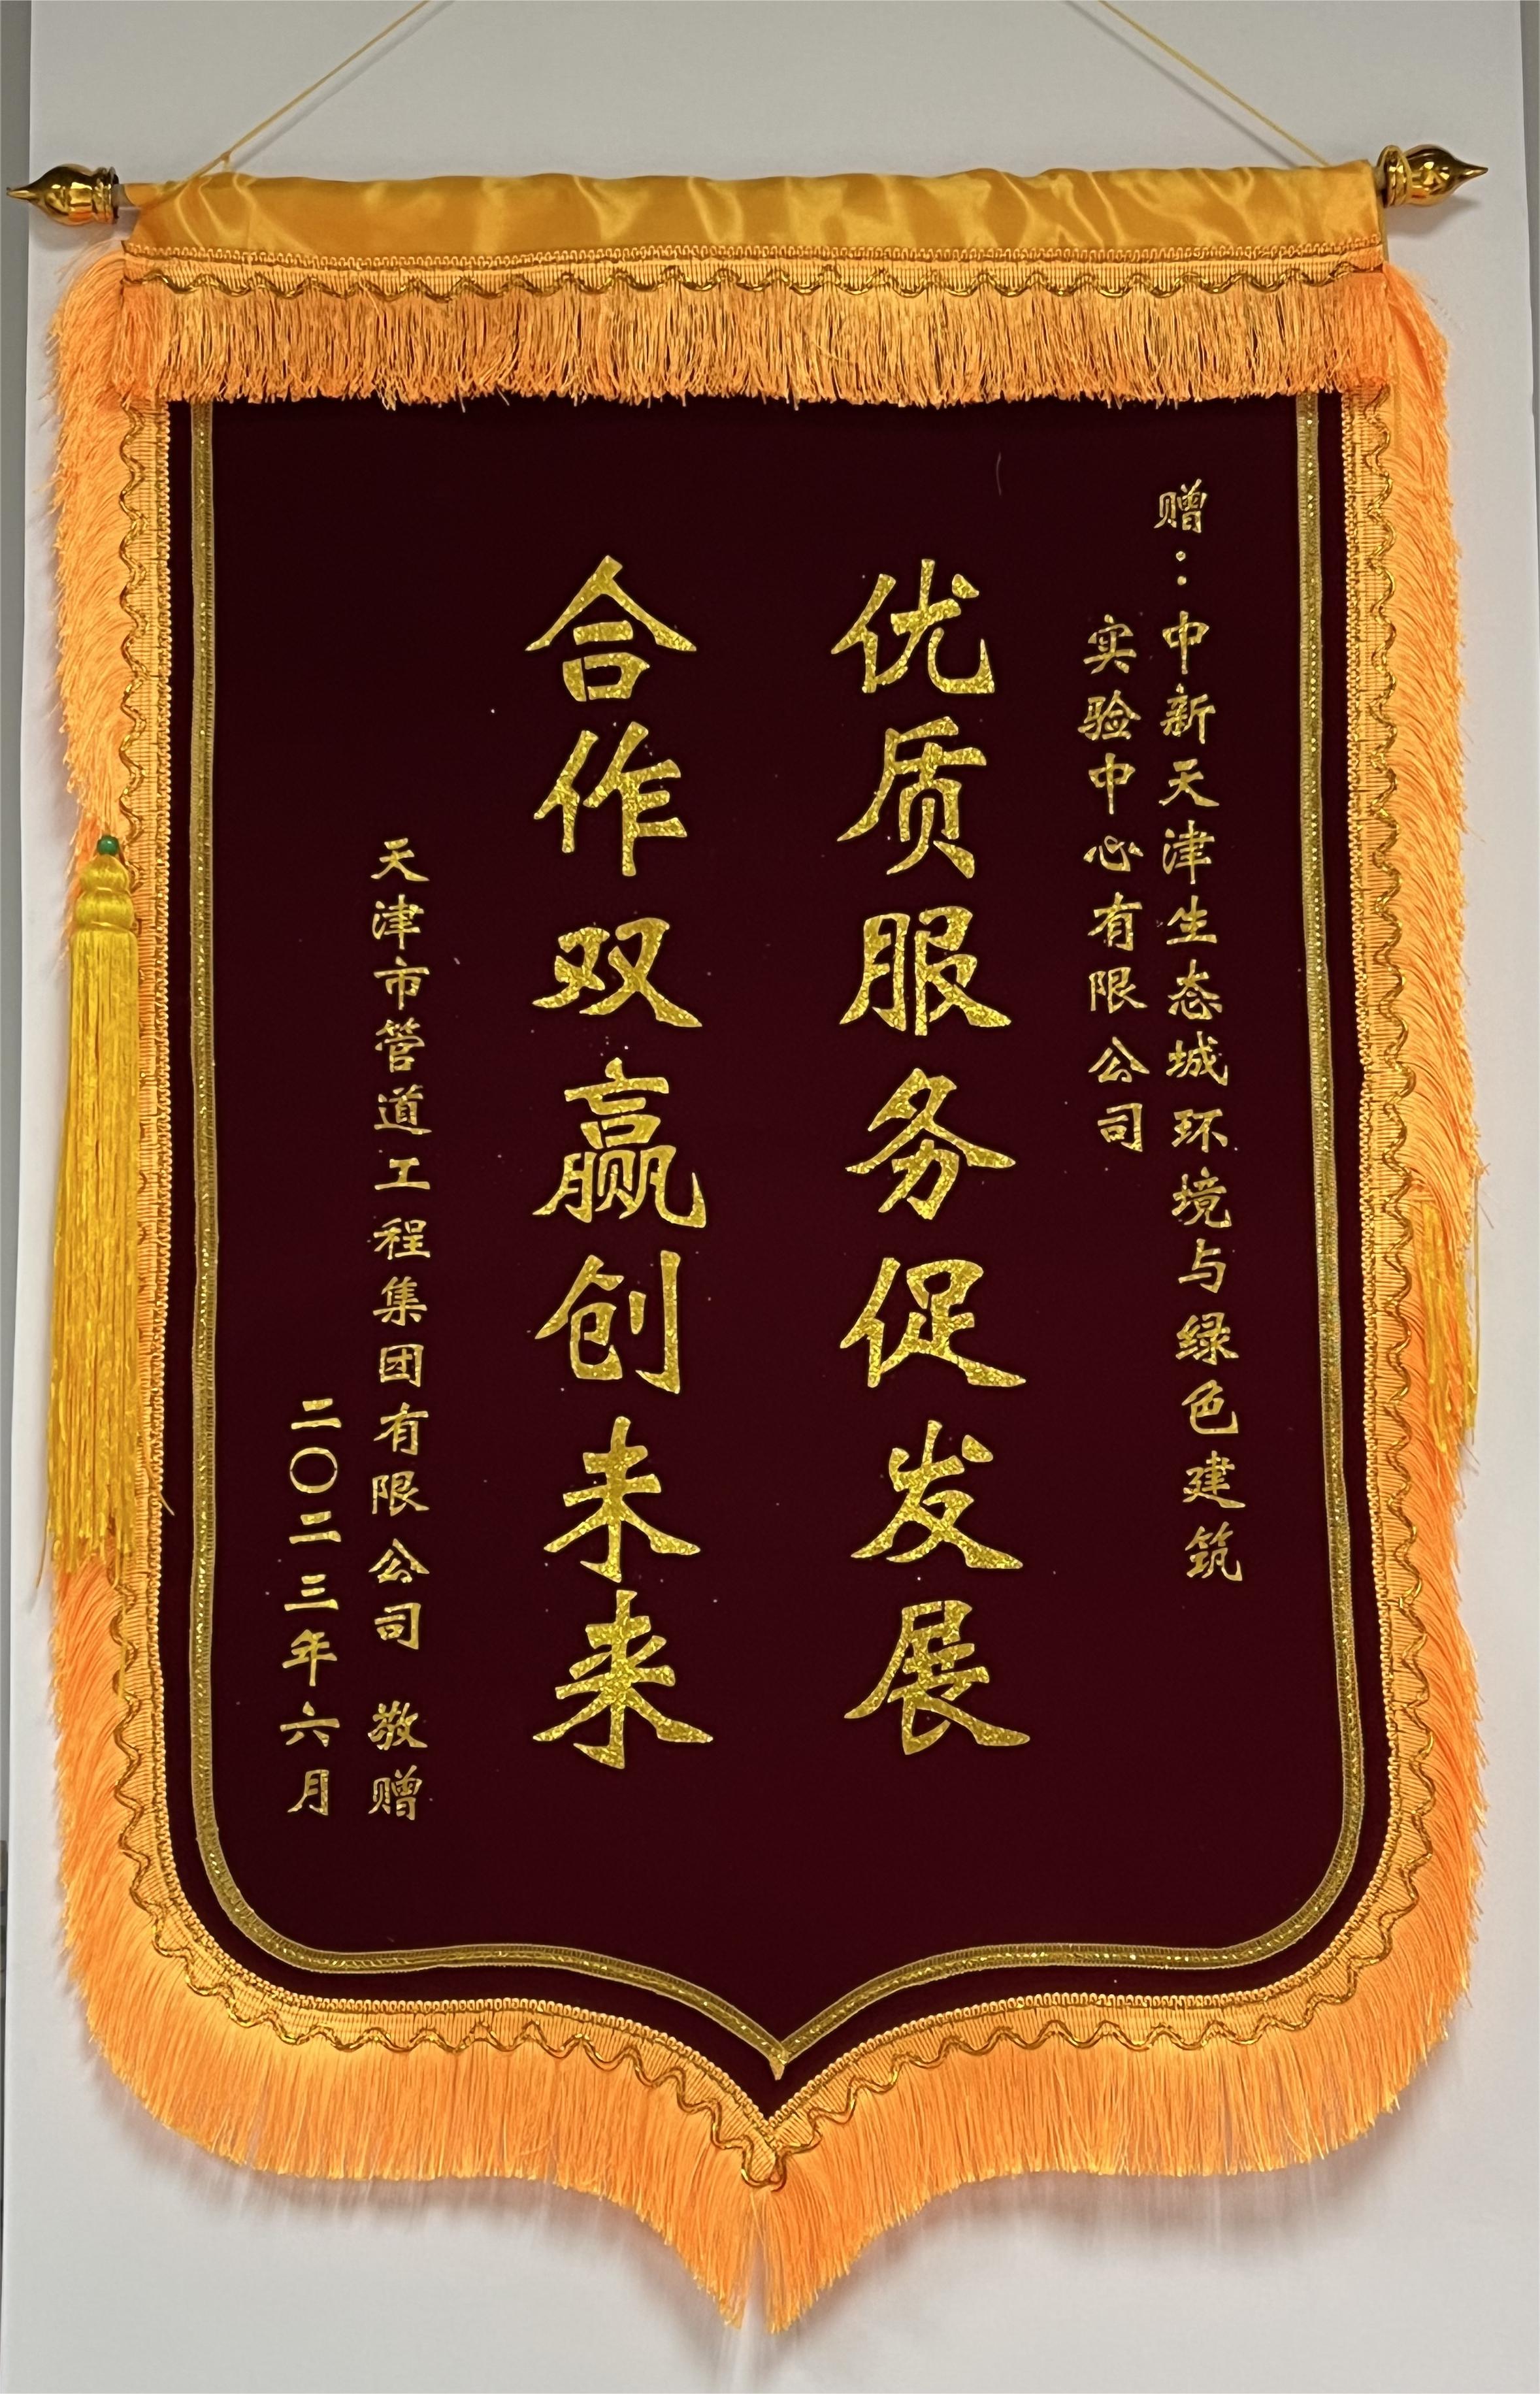 赠：中新天津生态城环境与绿色建筑
实验中心有限公司
优质服务促发展
合作双赢创未来
天津市管道工程集团有限公司 敬赠
二〇二三年六月